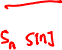 Sn S[n]